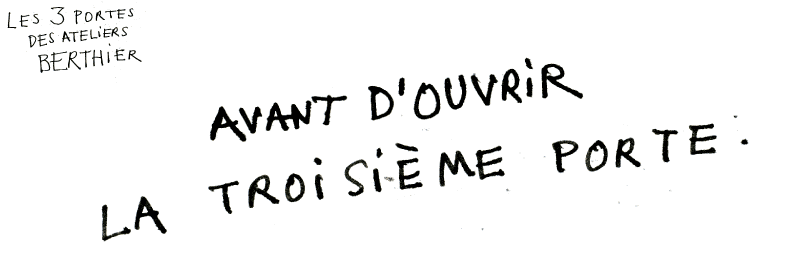 LES 3 PORTES
DES ATELIERS
BERTHIER
AVANT D'OUVRiR
LA TROiSiÈME PORTE :